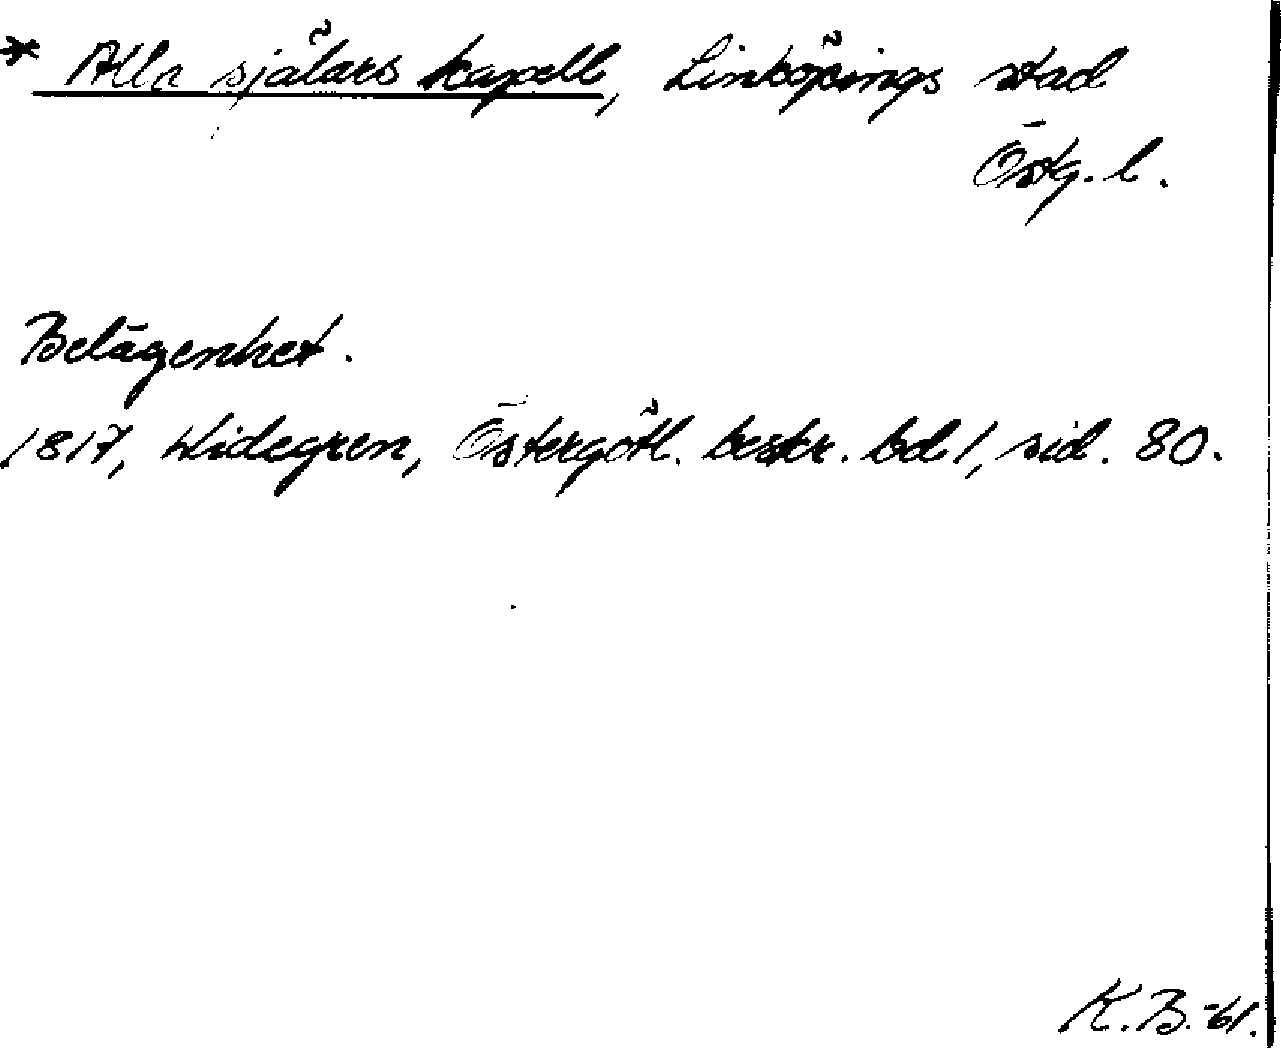 * Alla själars kapell, Linköpings stad
Östg. l.
Belägenhet.
1817, Widegren, Östergötl. beskr. bd 1, sid. 80.
K.B.-61.